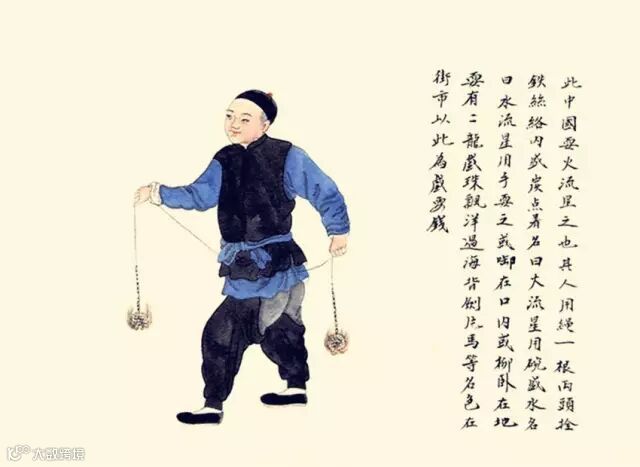 此中國耍火流星之也其人用繩一根両頭拴
鉄絲絡内盛炭点着名曰大流星用碗盛水名
曰水流星用手耍之或啣在口内或柳卧在地
耍有二龍戲珠觀洋過海背劍片馬等名色在
街市以此為戲耍錢
大数跨境